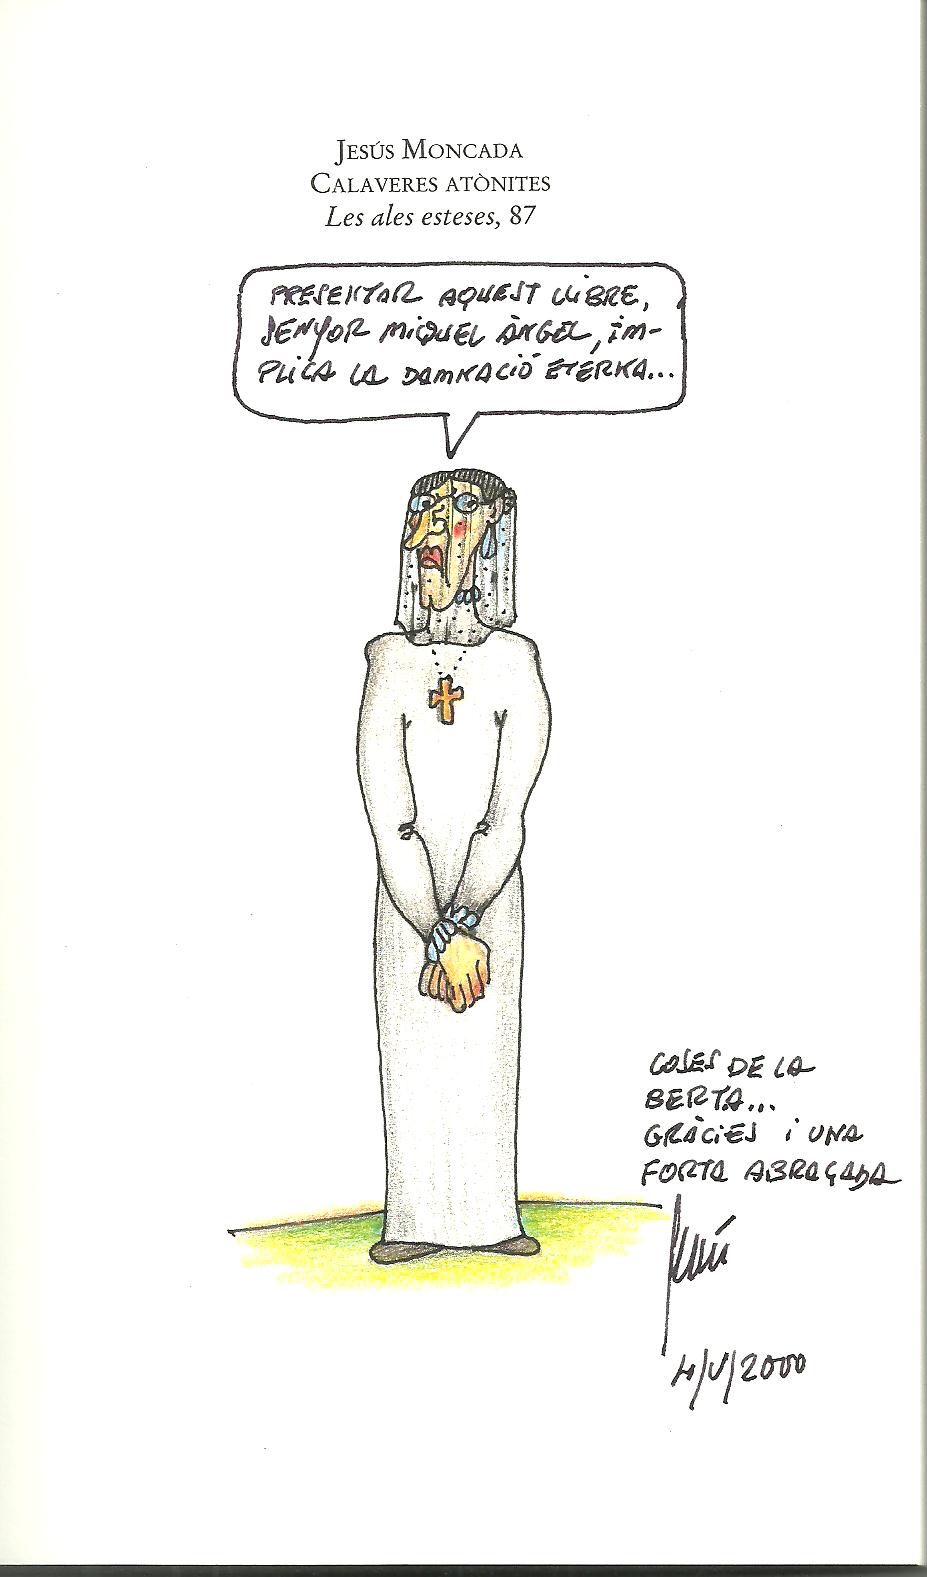 JESÚS MONCADA
CALAVERES ATÒNITES
Les ales esteses, 87
PRESENTAR AQUEST LLIBRE,
SENYOR MIQUEL ÀNGEL, IM-
PLICA LA DAMNACIÓ ETERNA...
COSES DE LA
BERTA...
GRÀCIES I UNA
FORTA ABRAÇADA
Jesús
4/V/2000